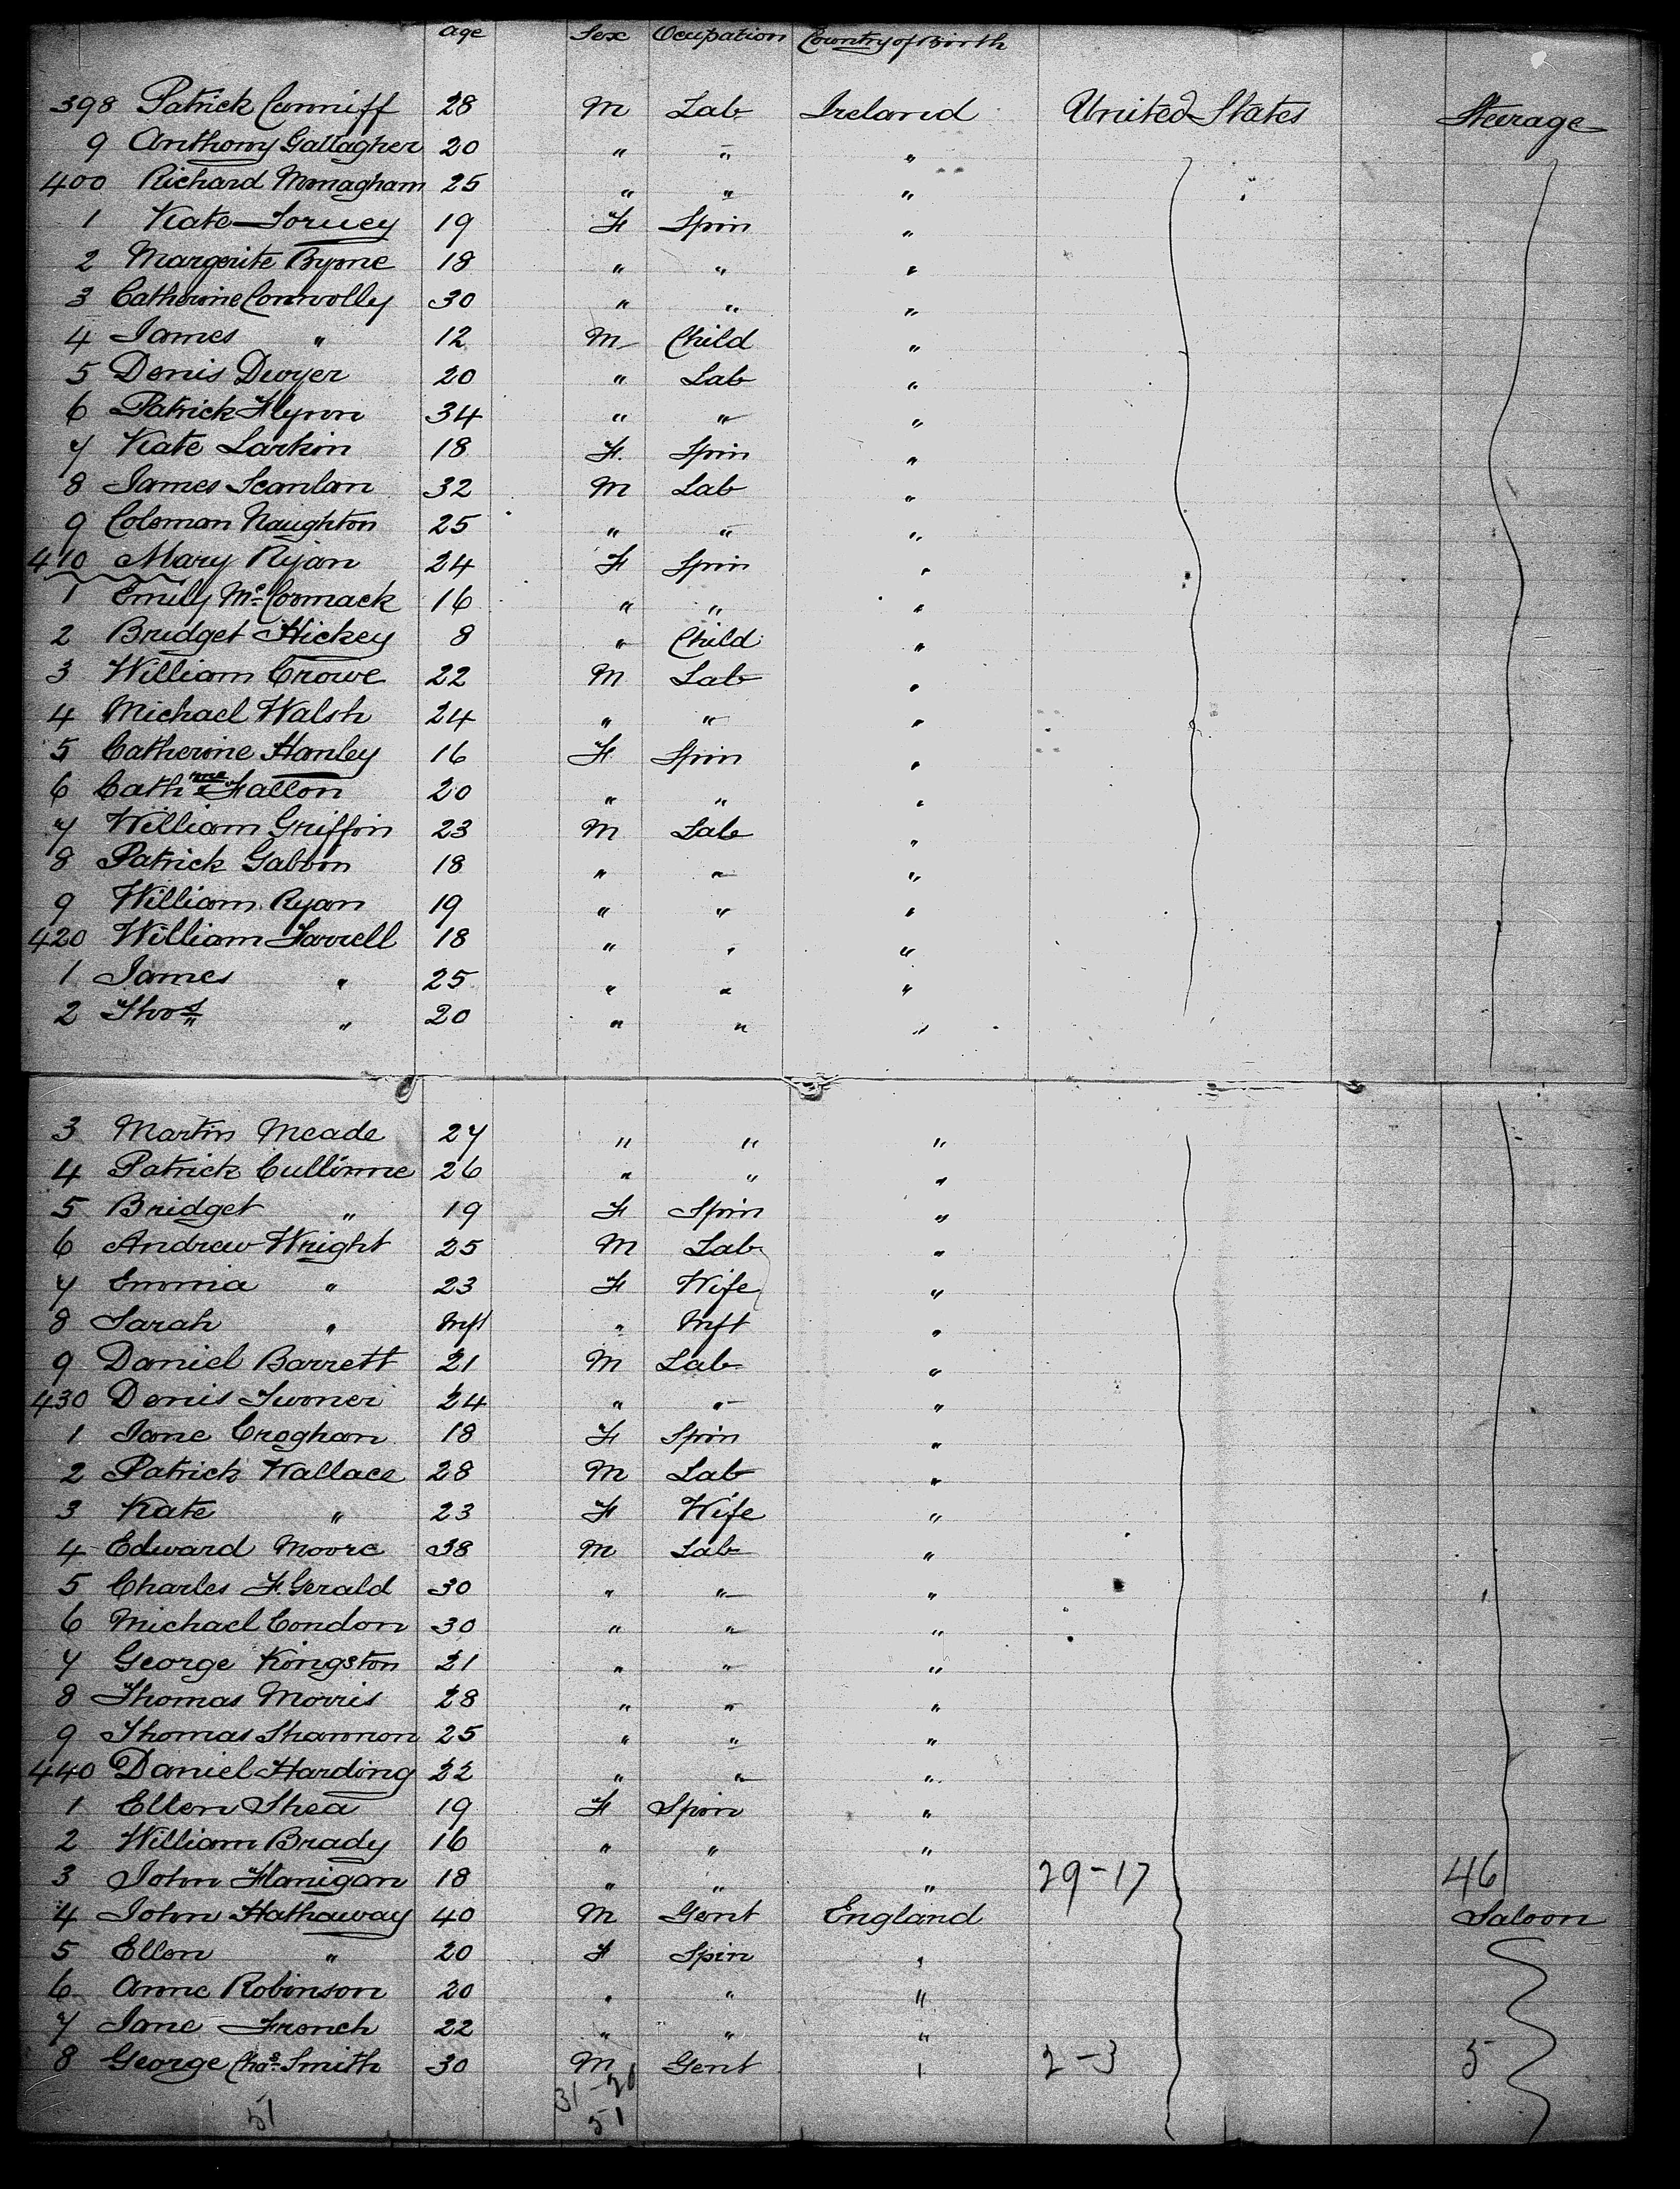 Age Sex Ocupation Country of Birth
398 Patrick Cunniff 28 M Lab Ireland United States Steerage
9 Anthony Gallagher 20 " " "
400 Richard Monagham 25 " " "
1 Kate 19 F Spin "
2 Margerite Byrne 18 " " "
3 Catherine Connolly 30 " " "
4 James " 12 M Child "
5 Denis Dwyer 20 " Lab "
6 Patrick Flynn 34 " " "
7 Kate Larkin 18 F. Spin "
8 James Scanlan 32 M Lab "
9 Coleman Naughton 25 " " "
410 Mary Ryan 24 F Spin "
1 Emily McCormack 16 " " "
2 Bridget Hickey 8 " Child "
3 William Crowe 22 M Lab "
4 Michael Walsh 24 " " "
5 Catherine Hanley 16 F Spin "
6 Cathne Fallon 20 " " "
7 William Griffin 23 M Lab "
8 Patrick Galvin 18 " " "
9 William Ryan 19 " " "
420 William Farrell 18 " " "
1 James " 25 " " "
2 Thos " 20 " " "
3 Martin Meade 27 " " "
4 Patrick Cullinne 26 " " "
5 Bridget " 19 F Spin "
6 Andrew Wright 25 M Lab "
7 Emma " 23 F Wife "
8 Sarah " Inft " Inft "
9 Daniel Barrett 21 M Lab "
430 Denis 24 " " "
1 Jane Croghan 18 F Spin "
2 Patrick Wallace 28 M Lab "
3 Kate " 23 F Wife "
4 Edward Moore 38 M Lab "
5 Charles F. Gerald 30 " " "
6 Michael Condon 30 " " "
7 George Kingston 21 " " "
8 Thomas Morris 28 " " "
9 Thomas Shannon 25 " " "
440 Daniel Harding 22 " " "
1 Ellen Shea 19 F Spin "
2 William Brady 16 " " "
3 John Flanigan 18 " " " 29-17 46
4 John Hathaway 40 M Gent England Saloon
5 Ellen " 20 F Spin "
6 Anne Robinson 20 " " "
7 Jane French 22 " " "
8 George Chas Smith 30 M Gent " 2-3 5
31-20
51 51